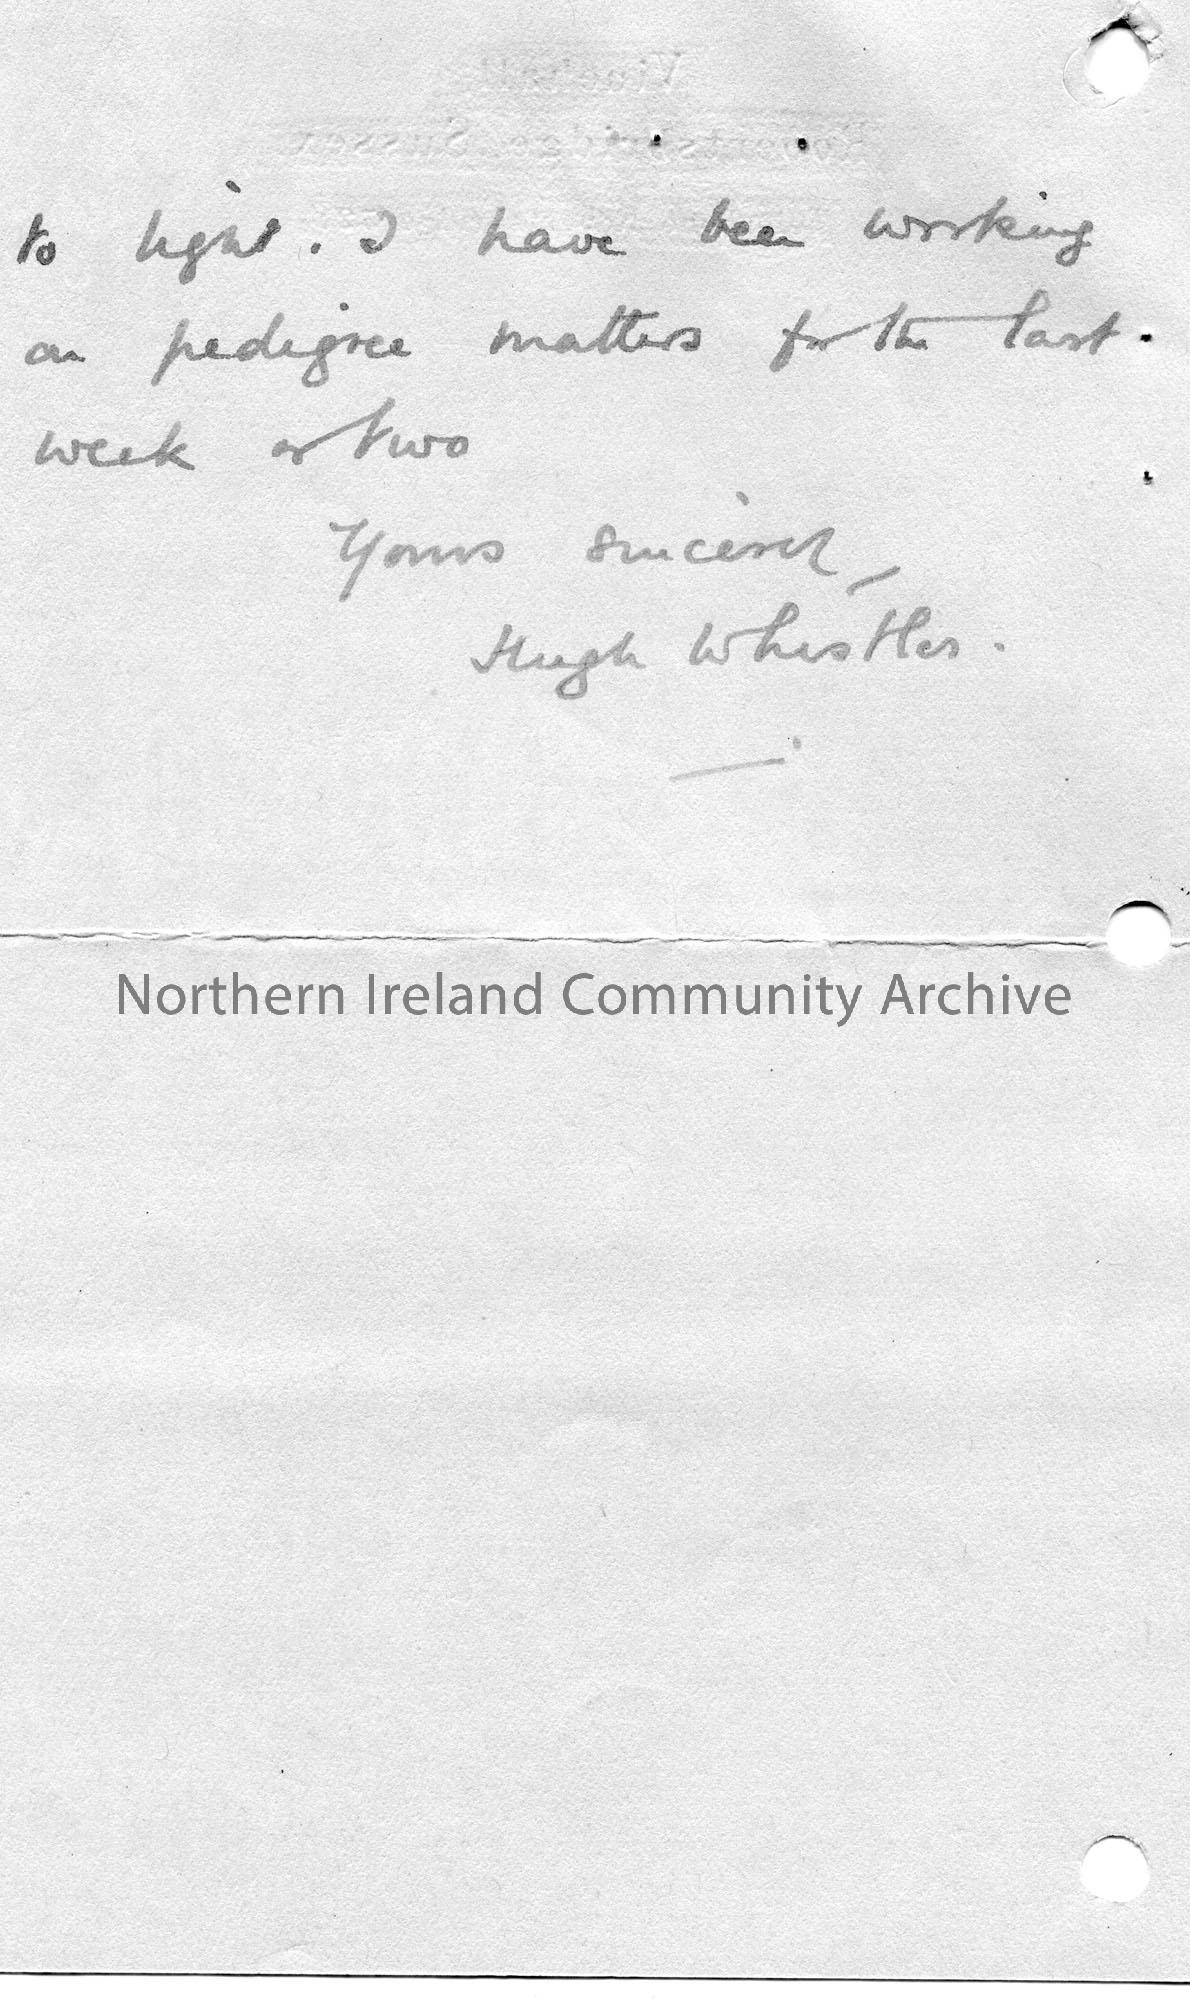 to light. I have been working
on pedigree matters for the last
week or two
Yours sincerely
Hugh Whistler.
Northern Ireland Community Archive